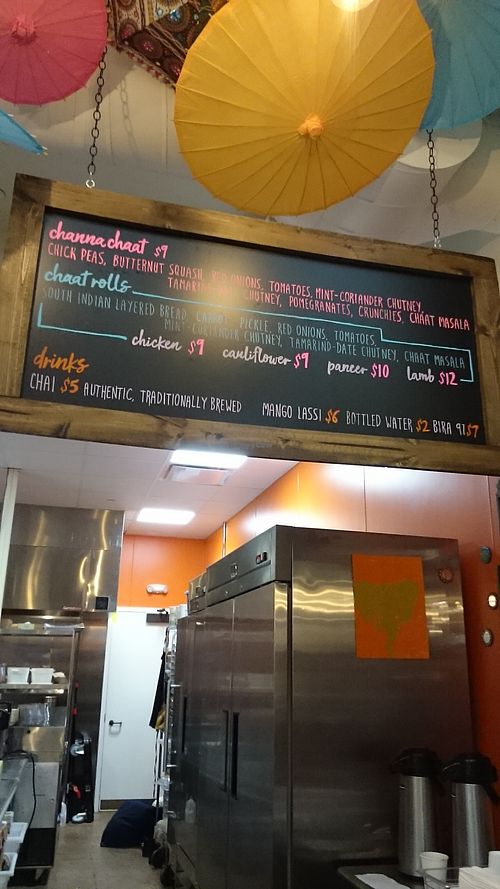 channa chaat $9
CHICK PEAS, BUTTERNUT SQUASH, RED ONIONS, TOMATOES, MINT-CORIANDER CHUTNEY,
TAMARIND-DATE CHUTNEY, POMEGRANATES, CRUNCHIES, CHAAT MASALA
chaat rolls
SOUTH INDIAN LAYERED BREAD, CARROT PICKLE, RED ONIONS, TOMATOES
MINT-CORIANDER CHUTNEY, TAMARIND-DATE CHUTNEY, CHAAT MASALA
chicken $9 cauliflower $9 paneer $10 lamb $12
drinks
CHAI $5 AUTHENTIC, TRADITIONALLY BREWED MANGO LASSI $6 BOTTLED WATER $2 BIRA 91 $7